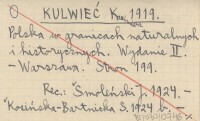 KULWIEĆ Kaz. 1919.
Polska w granicach naturalnych
i historycznych. Wydanie II.
- Warszawa. Stron 199.
Rec.: Smoleński J. 1924. -
Kosińska-Bartnicka S. 1924 b. -